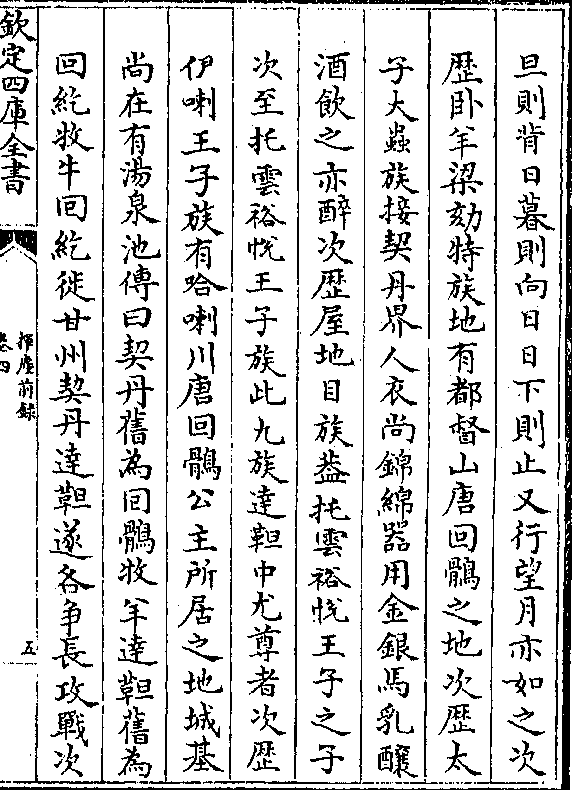 旦則背日暮則向日日下則止又行望月亦如之次
歴卧羊梁劾特族地有都督山唐回鶻之地次歴太
子大蟲族接契丹界人衣尚錦綿器用金銀馬乳釀
酒飲之亦醉次歴屋地目族葢托雲裕悅王子之子
次至托雲裕悅王子族此九族達靼中尤尊者次歴
伊喇王子族有哈喇川唐回鶻公主所居之地城基
尚在有湯泉池傳曰契丹舊為回鶻牧羊達靼舊為
回紇牧牛回紇徙甘州契丹達靼遂各争長攻戰次
欽定四庫全書
揮麈前録
卷四
五